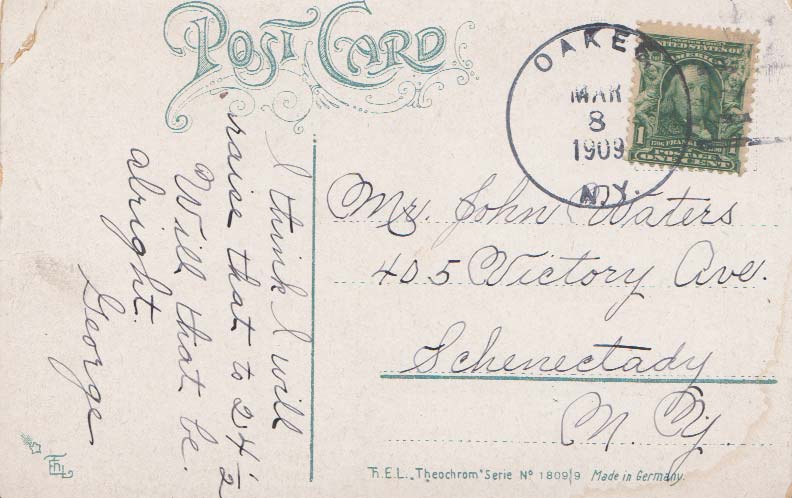 POST CARD
OAKES
MAR
8
1909
N.Y.
UNITED STATES OF
AMERICA
1 1706 FRANKLIN 1
POSTAGE
ONE CENT
I think I will
raise that to 24 1/2
Will that be.
alright.
George
Mr. John Waters
405 Victory Ave.
Schenectady
N. Y.
Th.E.L. „Theochrom" Serie No 1809/9 Made in Germany.
ThEL